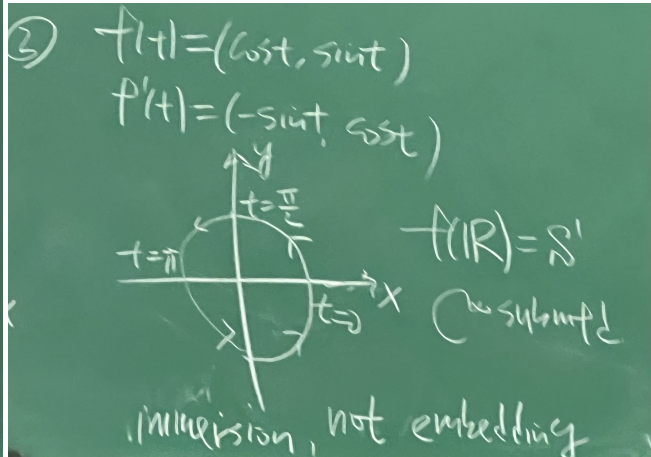 ③ f(t)=(cost, sint)
f'(t)=(-sint, cost)
y
t=π/2
t=π
f(ℝ)=S¹
x
t=0
C^∞ submfd
immersion, not embedding